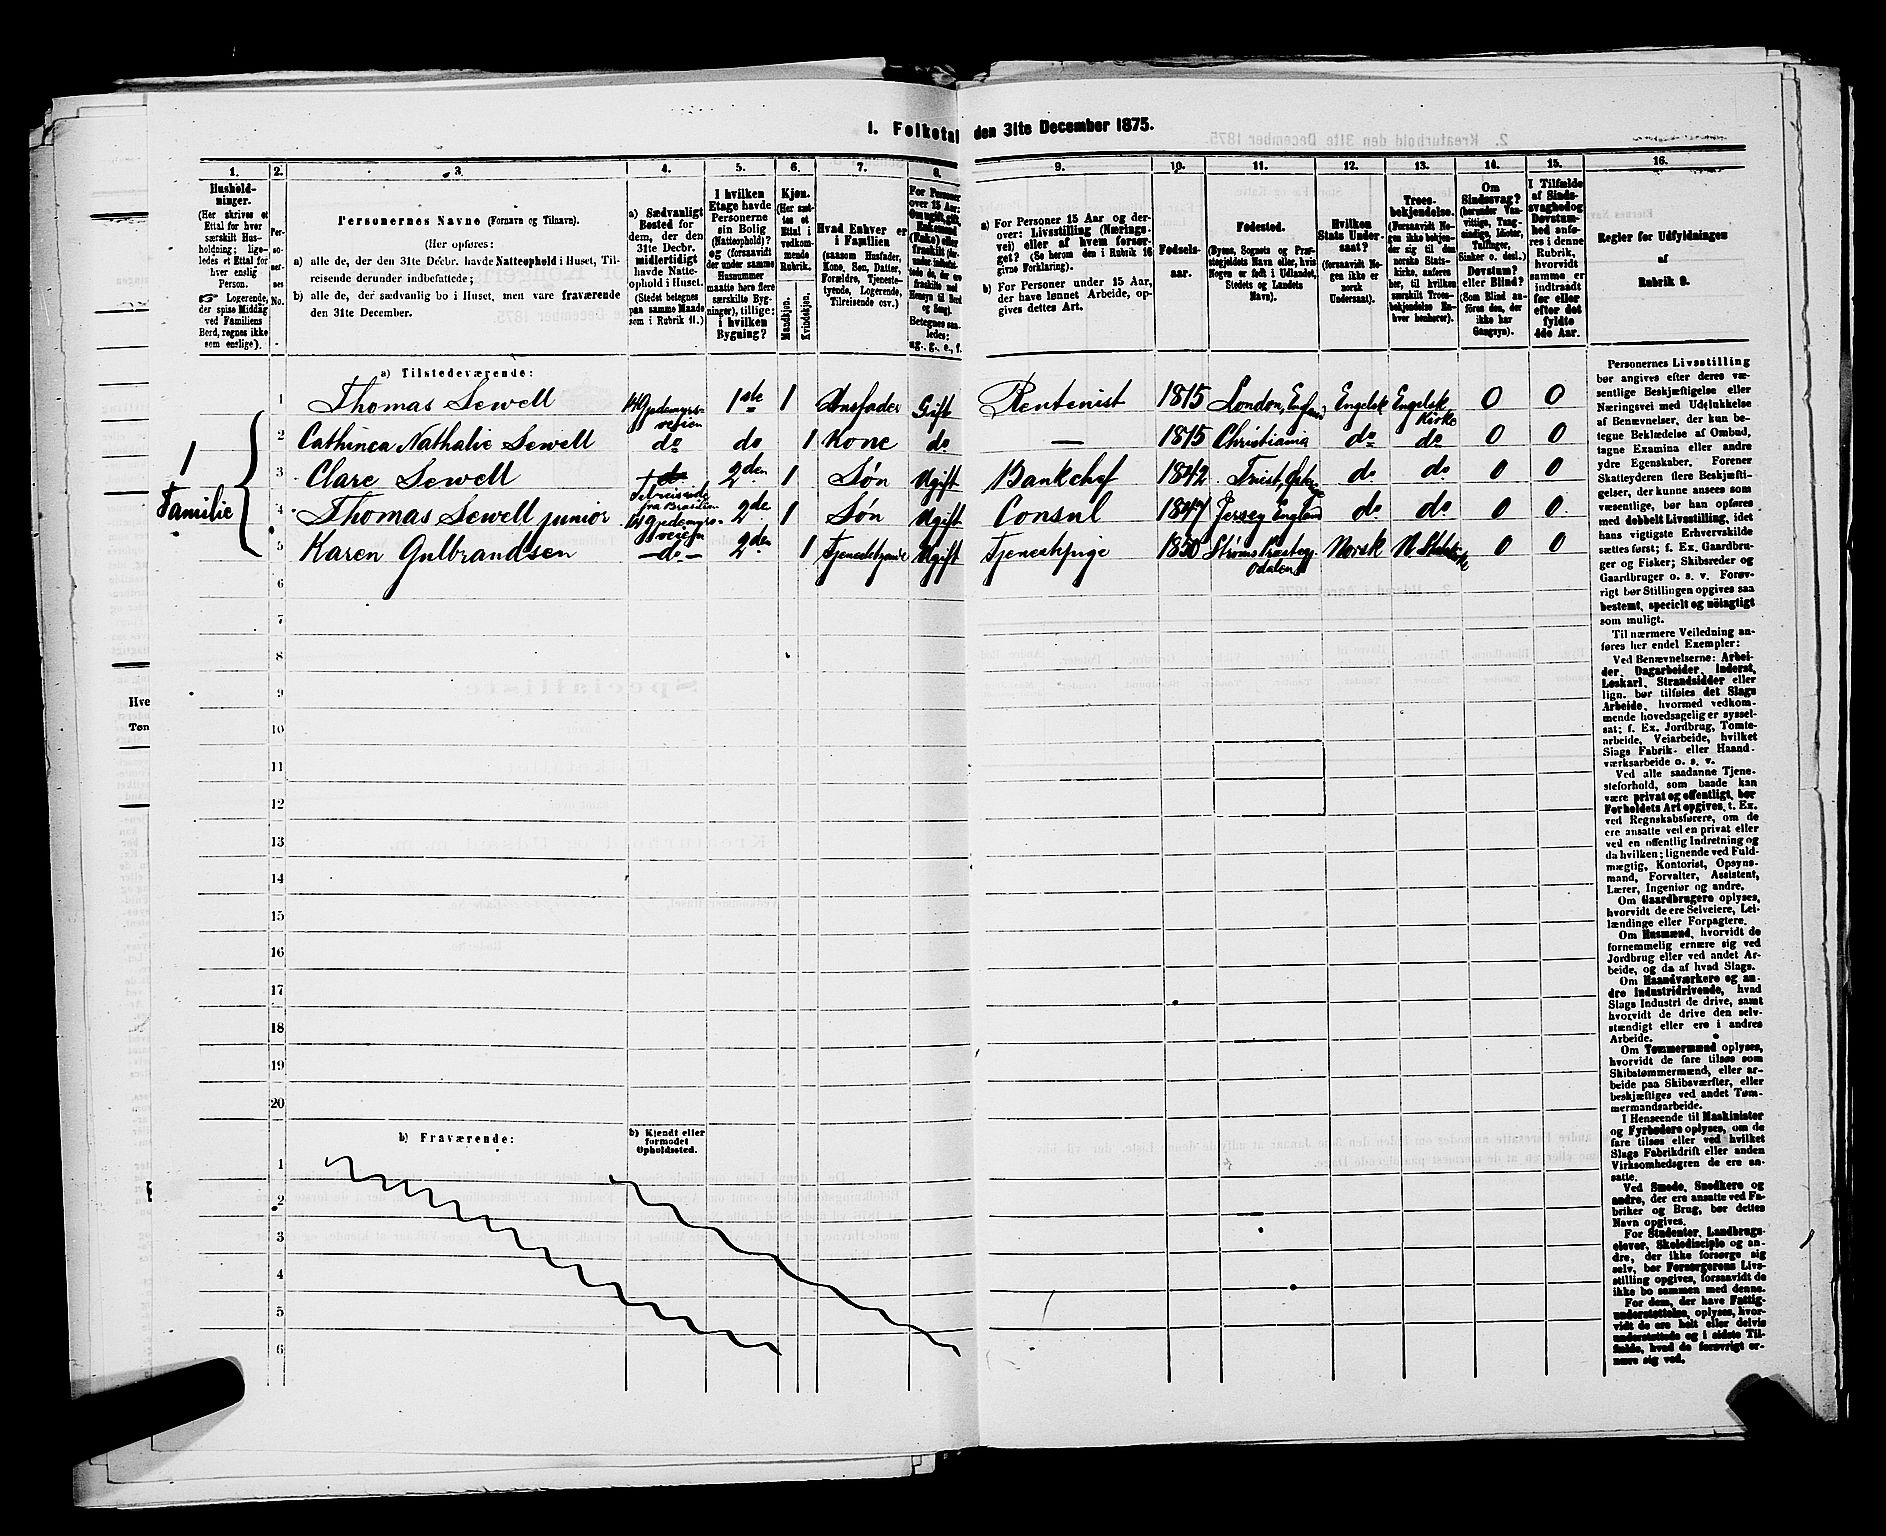 1. Folketal den 31te December 1875.
1. 2. 3. 4. 5. 6. 7. 8. 9. 10. 11. 12. 13. 14. 15. 16.
Hushold-
ninger.
(Her skrives et
Ettal for hver
særskilt Hus-
holdning; lige-
ledes et Ettal for
hver enslig
Person.
☞ Logerende,
der spise Middag
ved Familiens
Bord, regnes ikke
som enslige).
Per-
so-
ner-
nes
No.
Personernes Navne (Fornavn og Tilnavn).
(Her opføres:
a) alle de, der den 31te Decbr. havde Natteophold i Huset, Til-
reisende derunder indbefattede;
b) alle de, der sædvanlig bo i Huset, men vare fraværende
den 31te December.
a) Sædvanligt
Bosted for
dem, der den
31te Decbr.
midlertidigt
havde Natte-
ophold i Huset.
(Stedet betegnes
paa samme Maade
som i Rubrik 11.)
I hvilken
Etage havde
Personerne
sin Bolig
(Natteophold)?
og (forsaavidt
der under samme
Husnummer
maatte høre flere
særskilte Byg-
ninger), tillige:
i hvilken
Bygning?
Kjøn.
(Her sæt-
tes et
Ettal i
vedkom-
mende
Rubrik.
Mandkjøn.
Kvindekjøn.
Hvad Enhver er
i Familien
(saasom Husfader,
Kone, Søn, Datter,
Forældre, Tjeneste-
tyende, Logerende,
Tilreisende osv.)
For Personer
over 15 Aar:
Om ugift, gift,
Enkemand
(Enke) eller
fraskilt
Betegnes saa-
ledes:
ug., g., e., f.
a) For Personer 15 Aar og der-
over: Livsstilling (Nærings-
vei) eller af hvem forsør-
get? (Se herom den i Rubrik 16
givne Forklaring).
b) For Personer under 15 Aar,
der have lønnet Arbeide, op-
gives dettes Art.
Fødsels-
aar.
Fødested.
(Byens, Sognets og Præ-
stegjeldets Navn eller, hvis
Nogen er født i Udlandet,
Stedets og Landets
Navn).
Hvilken
Stats Under-
saat?
(forsaavidt No-
gen ikke er
norsk
Undersaat).
Troes-
bekjendelse.
(Forsaavidt No-
gen ikke bekjen-
der sig til den
norske Stats-
kirke, anføres
her, til hvilken
særskilt Troes-
bekjendelse En-
hver henhører).
Om
Sindssvag?
(herunder Van-
vittige, Tung-
sindige, Idioter,
Tullinger,
Sinker o. desl.)
Døvstum?
eller Blind?
(Som Blind an-
føres den, der
ikke har
Gangsyn).
I Tilfælde
af Sinds-
svaghed og
Døvstum-
hed anfø-
res i denne
Rubrik,
hvorvidt
samme er
indtraadt
før eller
efter det
fyldte
4de Aar.
Regler for Udfyldningen
af
Rubrik 9.
a) Tilstedeværende:
1 Thomas Sewell 1ste 1 Husfader Gift Rentenist 1815 London, Engelsk Engelsk Kirke 0 0
2 Cathinca Nathalie Sewell do do 1 Kone do — 1815 Christiania do do 0 0
3 Clare Sewell Tilreisende fra Brasilien 2den 1 Søn Ugift Bankchef 1842 do do 0 0
4 Thomas Sewell junior 2den 1 Søn Ugift Consul 1847 Jersey England do do 0 0
5 Karen Gulbrandsen — do — 2den 1 Ugift Tjenestepige 1850 Odalen Norsk 0 0
1
Familie
6
7
8
9
10
11
12
13
14
15
16
17
18
19
20
b) Fraværende:
b) Kjendt eller
formodet
Opholdssted.
1
2
3
4
5
6
Personernes Livsstilling
bør angives efter deres væ-
sentlige Beskjæftigelse eller
Næringsvei med Udelukkelse
af Benævnelser, der kun be-
tegne Beklædelse af Ombud,
tagne Examina eller andre
ydre Egenskaber. Forener
Skatteyderen flere Beskjæfti-
gelser, der kunne ansees som
væsentlige, bør han opføres
med dobbelt Livsstilling, idet
hans vigtigste Erhvervskilde
sættes først; f. Ex. Gaardbru-
ger og Fisker; Skibsreder og
Gaardbruger o. s. v. Forøv-
rigt bør Stillingen opgives saa
bestemt, specielt og nöiagtigt
som muligt.
Til nærmere Veiledning an-
føres her endel Exempler:
Ved Benævnelserne: Arbei-
der, Dagarbeider, Inderst,
Løskarl, Strandsidder eller
lign. bør tilføies det Slags
Arbeide, hvormed vedkom-
mende hovedsagelig er syssel-
sat; f. Ex. Jordbrug, Tomte-
arbeide, Veiarbeide, hvilket
Slags Fabrik- eller Haand-
værksarbeide o. s. v.
Ved alle saadanne Tjene-
steforhold, som baade kan
være privat og offentligt, bør
Forholdets Art opgives, t. Ex.
ved Regnskabsførere, om de
ere ansatte ved en privat eller
ved en offentlig Indretning og
da hvilken; lignende ved Fuld-
mægtig, Kontorist, Opsyns-
mand, Forvalter, Assistent,
Lærer, Ingeniør og andre.
Om Gaardbrugere oplyses,
hvorvidt de ere Selveiere, Lei-
lændinge eller Forpagtere.
Om Husmænd, hvorvidt de
fornemmelig ernære sig ved
Jordbrug eller ved andet Ar-
beide, og da af hvad Slags.
Om Haandværkere og an-
dre Industridrivende, hvad
Slags Industri de drive, samt
hvorvidt de drive den selv-
stændigt eller ere i andres
Arbeide.
Om Tømmermænd oplyses,
hvorvidt de fare tilsøs som
Skibstømmermænd, eller ar-
beide paa Skibsværfter, eller
beskjæftiges ved andet Tøm-
mermandsarbeide.
I Henseende til Maskinister
og Fyrbødere oplyses, om de
fare tilsøs eller ved hvilket
Slags Fabrikdrift eller anden
Virksomhedsgren de ere an-
satte.
Ved Smede, Snedkere og
andre, der ere ansatte ved Fa-
briker og Brug, bør dettes
Navn opgives.
For Studenter, Landbrugs-
elever, Skoledisciple og an-
dre, der ikke forsørge sig
selv, bør Forsørgerens Livs-
stilling opgives, forsaavidt de
ikke bo sammen med denne.
For dem, der have Fattig-
understøttelse, oplyses, hvor-
vidt de ere helt eller delvis
understøttede og i sidste Til-
fælde, hvad de forøvrigt er-
nære sig ved.